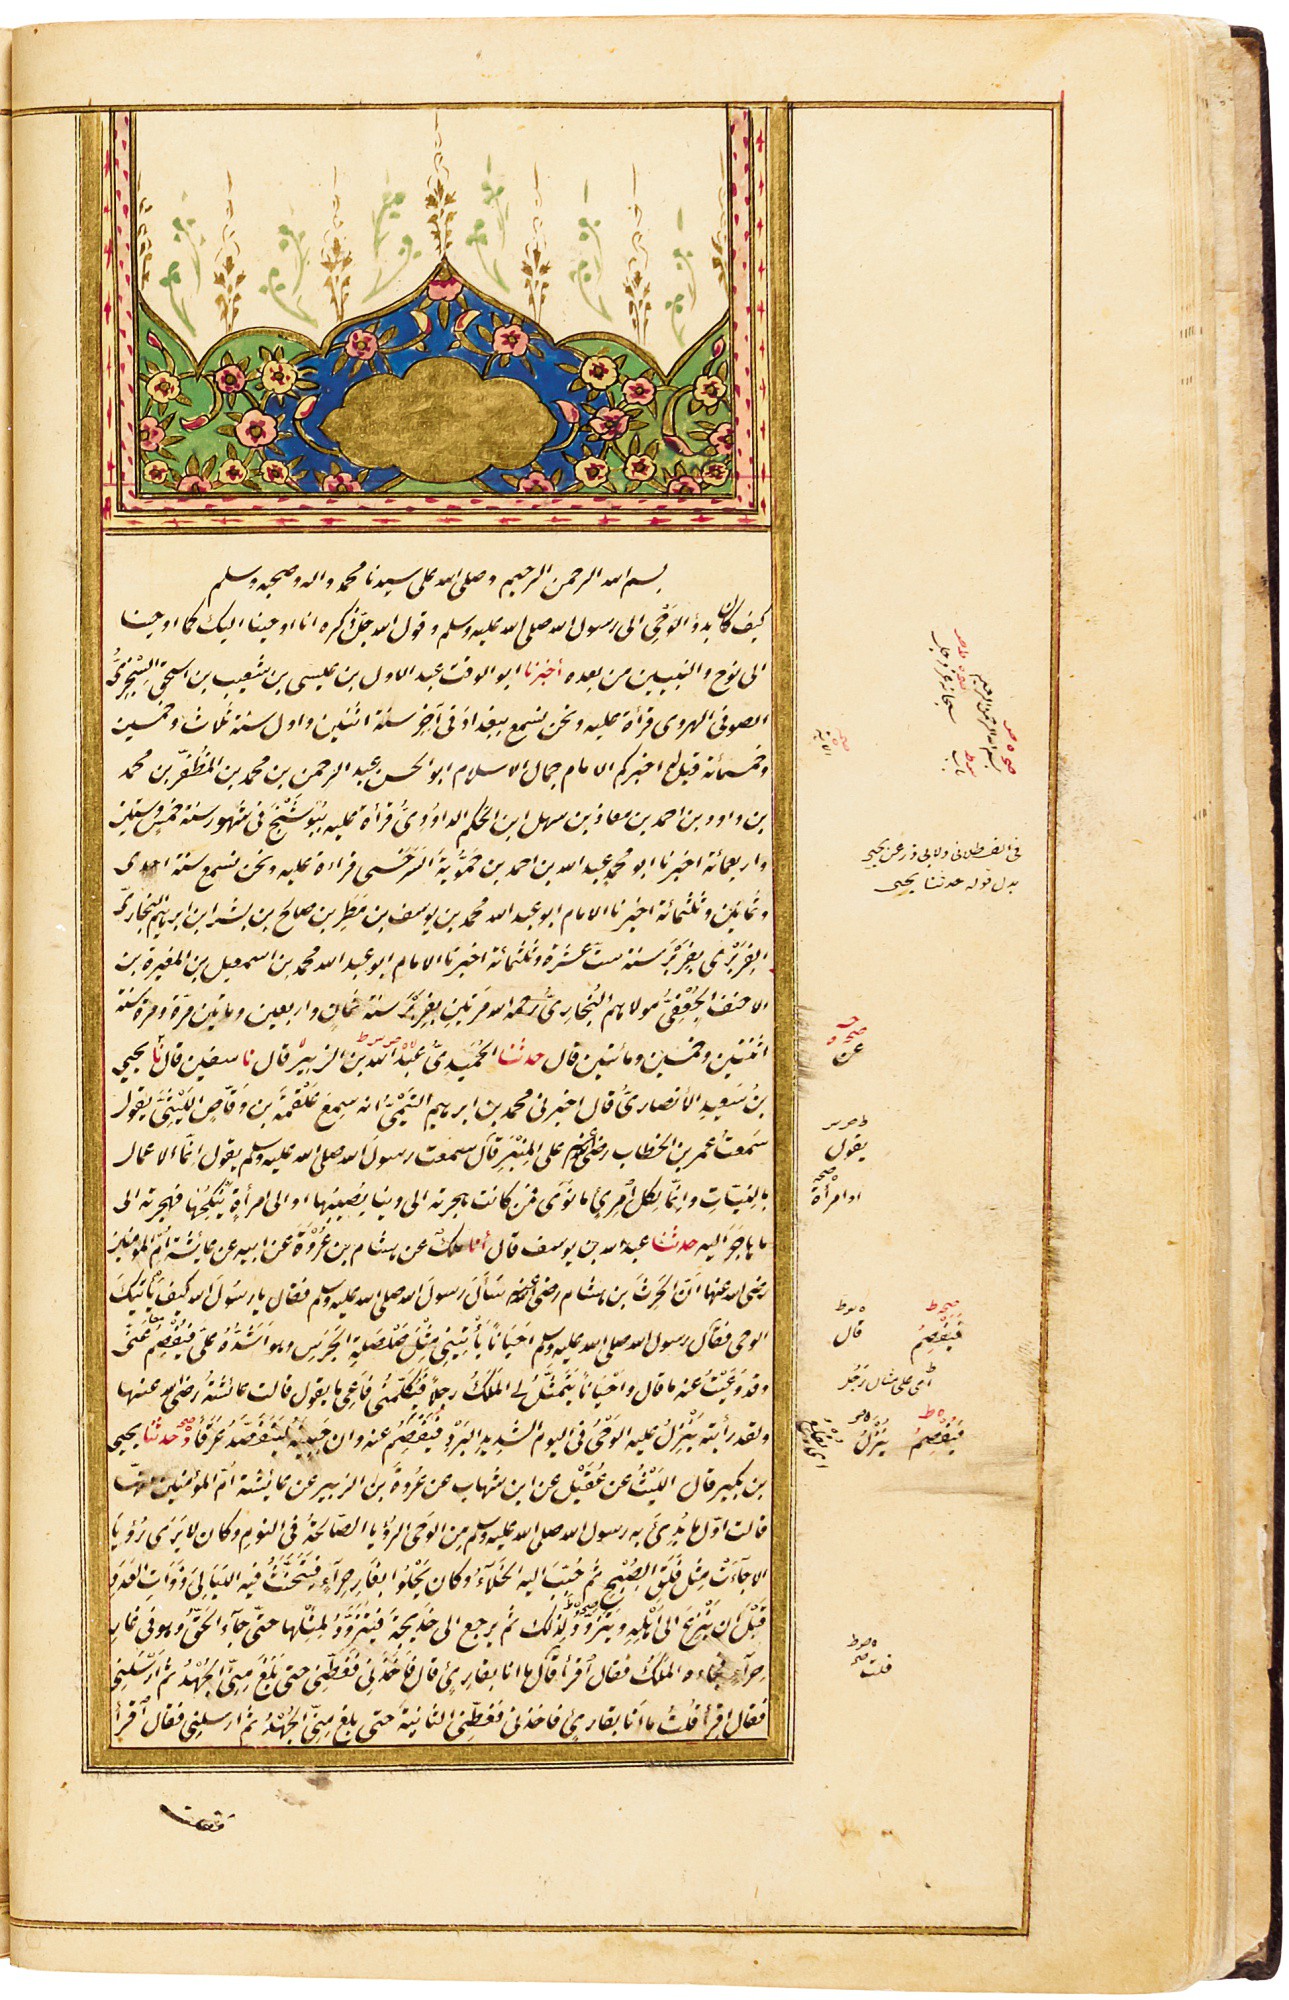 بسم الله الرحمن الرحيم وصلى الله على سيدنا محمد واله وصحبه وسلم
كيف كان بدؤ الوَحْيِ الى رسول الله صلى الله عليه وسلم وقول الله جلّ ذكره انا اوحينا اليك كما اوحينا
الى نوح والنبيين من بعده اخبرنا ابو الوقت عبد الاول بن عيسى بن شعيب بن اسحق السِّجْزِىُّ
الصوفى الهروى قرأة عليه ونحن نسمع ببغداد فى آخر سنة اثنين واول سنة ثلاث وخمسين
وخمسمائة قيل له اخبركم الامام جمال الاسلام ابو الحسن عبد الرحمن بن محمد بن المظَفّر بن محمد
بن داود بن احمد بن معاذ بن سهل ابن الحَكم الداوُودِىُّ قرأة عليه ببُوشَنْج فى شهور سنة خمس وستين
واربعمائة اخبرنا ابو محمد عبد الله بن احمد بن حَمُّويَة السَّرَخْسى قراءة عليه ونحن نسمع سنة احدى
وثمانين وثلثمائة اخبرنا الامام ابو عبد الله محمد بن يوسف بن مَطَر بن صالح بن بشر ابن ابرهيم البخارىّ
الفِرَبْرى بِفِرَبْرَ سنة ستّ عشرة وثلثمائة اخبرنا الامام ابو عبد الله محمد بن اسمعيل بن المغيرة بن
الاحنف الجُعْفِىُّ مولاهم البُخارِىُّ رحمه الله مَرتين بِفِرَبْرَ سنة ثمان واربعين ومايتين مَرّة ومرة سنة
اثنتين وخمسين ومائتين قال حدثنا الحُمَيدىُّ عَبدُ الله بن الزبير قال نا سفين قال نا يحيي
بنُ سَعيدٍ الأنصارىُّ قال اخبرنى محمد بن ابرهيم التَّيْمىُّ انه سمِعَ عَلْقمَةَ بن وَقّاصٍ اللَّيْثِىَّ يقول
سَمعتُ عمر بن الخطاب رضى الله عنه على المِنْبَرِ قال سمعت رسولَ الله صلى الله عليه وسلم يقول إنّما الاعمال
بالنيّاتِ وانّما لِكل امْرِئٍ مانَوَى فمَن كانت هجرته الى دنيا يُصيبُها او الى امرأةٍ يَنْكِحُها فهجرته الى
ماهاجَرَ اليه حدثنا عبد الله بن يوسف قال أنا ملك عن هشام بن عُرْوَةَ عن ابيه عن عايشة امِّ المؤمنين
رضى الله عنها انّ الحَرِثَ بن هشام رضى الله عنه سَأَلَ رسولَ الله صلى الله عليه وسلم فقال يا رسولَ الله كيف يأتيكَ
الوحى فقال رسول الله صلى الله عليه وسلم احْيَاناً يَأْتِينِى مثْلَ صَلْصَلةِ الجَرَسِ وهو اَشَدُّهُ علَىَّ فيُفْصِمُ عَنّى
وقد وَعَيْتُ عنه ما قال واحْيَاناً يَتَمثّلُ لى المَلَكُ رجلاً فَيُكَلِّمُنى فاَعِى ما يقول قالت عائشةُ رضى الله عنها
ولقد رأيته يَنْزِلُ عليه الوَحْىُ فى اليوم الشديدِ البَرْدِ فَيَفْصِمُ عنه وان جَبِينَه ليَتَفَصَّدُ عَرَقًا حدثنا يحيى
بن بكير قال الليْثُ عن عُقَيْل عن ابن شهاب عن عروةَ بن الزبير عن عايشة اُمّ المؤمنين انها
قالت اوّل ما بُدِئَ به رسول الله صلى الله عليه وسلم مِن الوَحى الرؤيا الصّالحةُ فى النوم وكان لا يَرَى رُؤيَا
الاجَآءَتْ مِثل فَلَقِ الصُّبْحِ ثم حُبِّبَ اليه الخَلآءُ وكان يَخْلُوا بغَارِ حِرآءٍ فَيَتَحَنَّثُ فيه الليَالِىَ ذَوَاتِ العَدَدِ
قَبْلَ اَن يَنْزِعَ الى اَهْلِهِ وَيَتَزَوَّدُ لِذلك ثم يرجع الى خَدِيجَةَ فَيَتَزَوَّدُ لِمِثْلها حتّى جآءَ الحَقُّ وهو فى غَارِ
حِرآءٍ فجاءه المَلَكُ فقال اقرأ قال ما انا بقارئٍ قال فاَخَذَنِى فَغَطّنِى حتى بَلَغَ مِنّى الجُهْدُ ثم ارْسَلَنِى
فقال اقرأ قُلتُ ما اَنا بقارئٍ فاخذنى فغطّنى الثانيةَ حَتى بلغ مِنّى الجُهْدُ ثم ارسلنى فقال اقرأ
سبحانه عز وجل
بسم الله الرحمن الرحيم
باب
الآية
فى القسطلانى ولابى ذر عن يحيى
بدل قوله حدثنا يحيى
عن
يقول
او امرأة
قال
فيَفصِمُ
اى على مثال رجل
فيُفصِمُ
يُنْزَلُ
قلت
فقلت